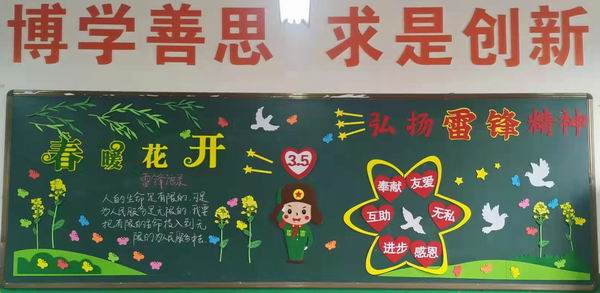 博学善思 求是创新
春暖花开
弘扬雷锋精神
3.5
人的生命是有限的,可是
为人民服务是无限的,我要
把有限的生命投入到无
限的为人民服务中去
奉献 友爱
互助 无私
进步 感恩